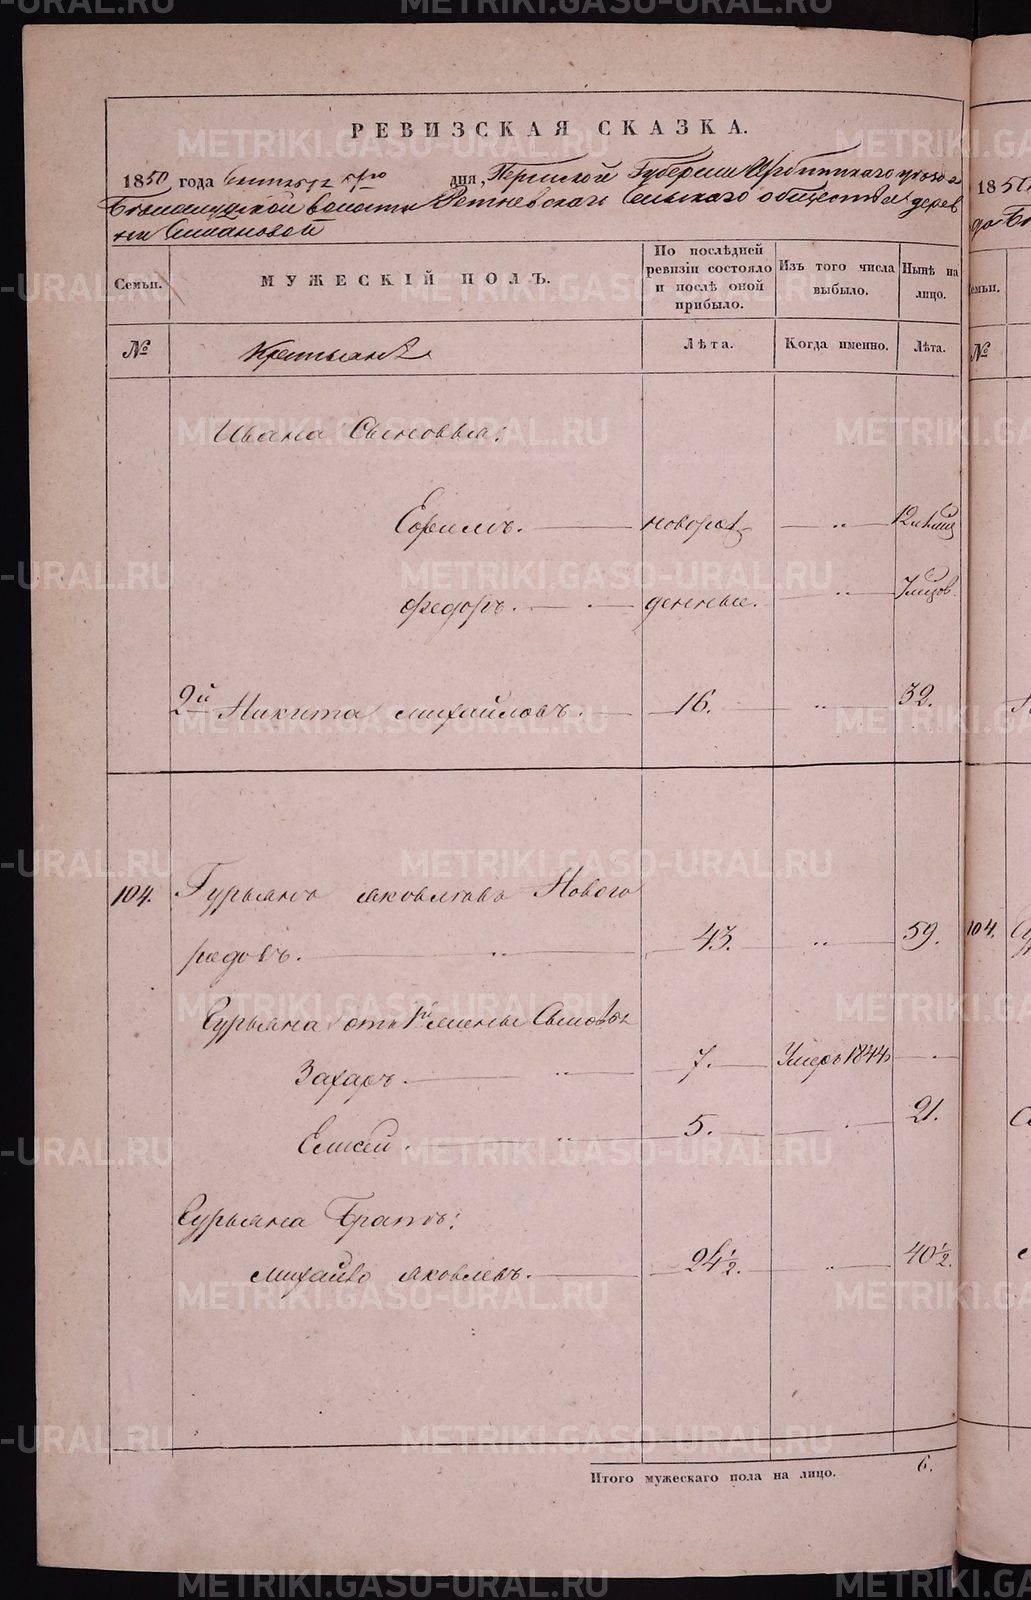 РЕВИЗСКАЯ СКАЗКА.
1850 года Сентября 1го дня, Пермской Губернии Ирбитскаго уезда
волости Сельскаго общества дерев
ни
Семьи.
МУЖЕСКІЙ ПОЛЪ.
По послѣдней ревизіи состояло и послѣ оной прибыло.
Изъ того числа выбыло.
Нынѣ на лицо.
№ Крестьяне Лѣта. Когда именно. Лѣта.
Ивана Сыновья:
Ефимъ. новорож „ 12 лѣтъ
Федоръ. денные. „ 7 мцов.
2й Никита Михайловъ. 16. „ 32.
104. Гурьянъ Яковлевъ Нового
родовъ. „ 43. „ 59.
Гурьяна от 1й жены Сыновья
Захаръ. „ 7. Умеръ 1844
Елисей. „ 5. 21.
Гурьяна Братъ:
Михайло Яковлевъ. 24½. „ 40½.
Итого мужескаго пола на лицо. 6.
1850
Семьи.
№
104.
METRIKI.GASO-URAL.RU